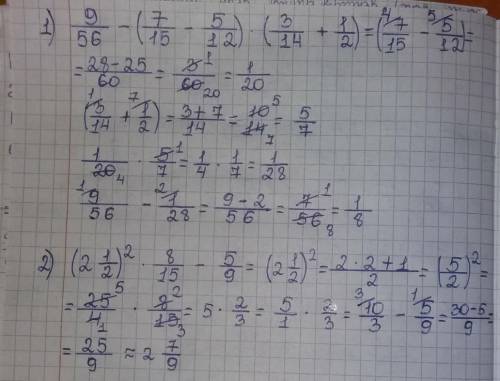 1) 9/56 - (7/15 - 5/12) · (3/14 + 1/2) = (⁴7/15 - ⁵5/12) =
= 28-25/60 = 3¹/60 20 = 1/20
(¹3/14 + ⁷1/2) = 3+7/14 = 10⁵/14 7 = 5/7
1/20 4 · 5¹/7 = 1/4 · 1/7 = 1/28
¹9/56 - ²1/28 = 9-2/56 = 7¹/56 8 = 1/8
2) (2 1/2)² · 8/15 - 5/9 = (2 1/2)² = 2·2+1/2 = (5/2)² =
= 25⁵/4 1 · 8²/15 3 = 5 · 2/3 = 5/1 · 2/3 = ³10/3 - ¹5/9 = 30-5/9 =
= 25/9 ≈ 2 7/9